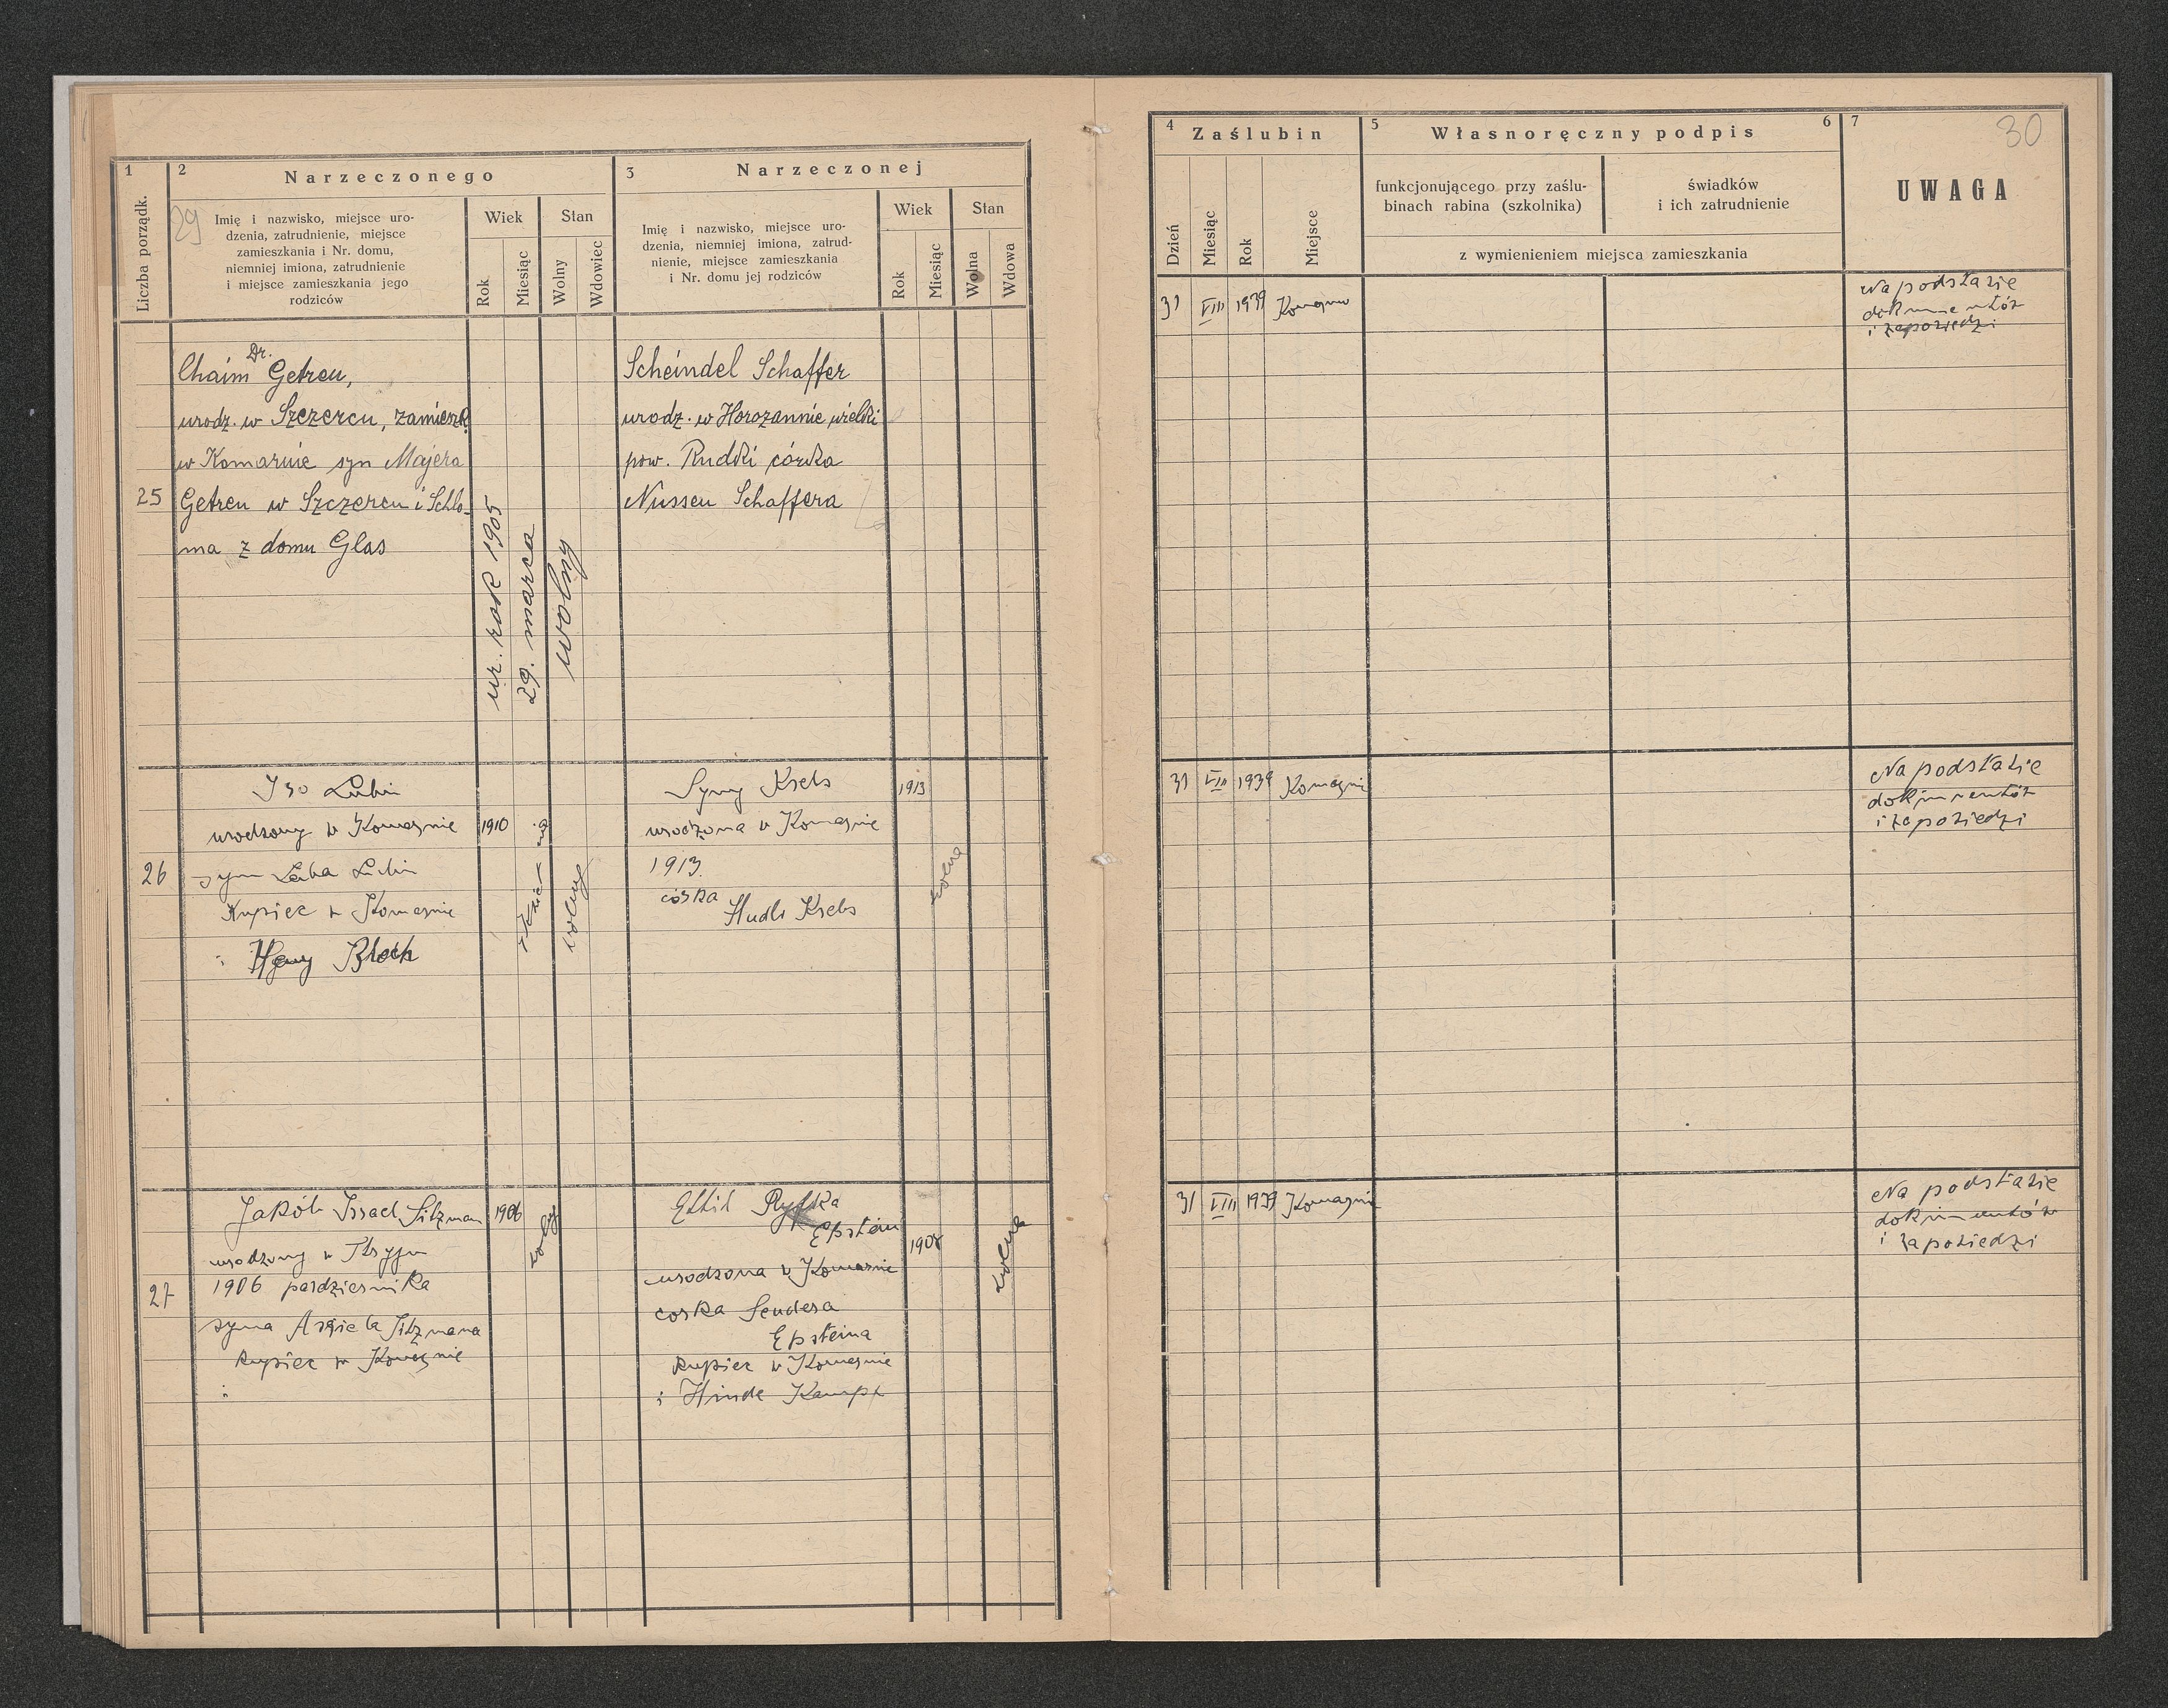 1
2
Narzeczonego
3
Narzeczonej
Liczba porządk.
29
Imię i nazwisko, miejsce uro-
dzenia, zatrudnienie, miejsce
zamieszkania i Nr. domu,
niemniej imiona, zatrudnienie
i miejsce zamieszkania jego
rodziców
Wiek
Stan
Rok
Miesiąc
Wolny
Wdowiec
Imię i nazwisko, miejsce uro-
dzenia, niemniej imiona, zatrud-
nienie, miejsce zamieszkania
i Nr. domu jej rodziców
Wiek
Stan
Rok
Miesiąc
Wolna
Wdowa
Dr.
Chaim Getreu,
urodz. w Szczercu, zamieszk.
w Komarnie syn Majera
25
Getreu w Szczercu i Schlo-
ma z domu Glas
ur. rok 1905
29. marca
wolny
Scheindel Schaffer
urodz. w Horozannie wielki
pow. Rudki córka
Nussen Schaffera
Iso Lubin
urodzony w Komarnie
1910
26
syn Leiba Lubin
Kupiec w Komarnie
i Heny Bloch
wolny
Syny Krebs
1913
urodzona w Komarnie
1913.
córka
Hudli Krebs
wolna
Jakób Israel Sitzman
1906
urodzony w Stryju
1906 października
27
syna Ariela Sitzmana
kupiec w Komarnie
i
wolny
Ettil
Epstein
1908
urodzona w Komarnie
córka Sendera
Epsteina
kupiec w Komarnie
i Hinde Kampf
wolna
4
Zaślubin
5
Własnoręczny podpis
6
7
30
Dzień
Miesiąc
Rok
Miejsce
funkcjonującego przy zaślu-
binach rabina (szkolnika)
świadków
i ich zatrudnienie
z wymienieniem miejsca zamieszkania
UWAGA
31 VIII 1939 Komarno
Na podstawie
dokumentów
i zapowiedzi
31 VIII 1939 Komarno
Na podstawie
dokumentów
i zapowiedzi
31 VIII 1939 Komarno
Na podstawie
dokumentów
i zapowiedzi